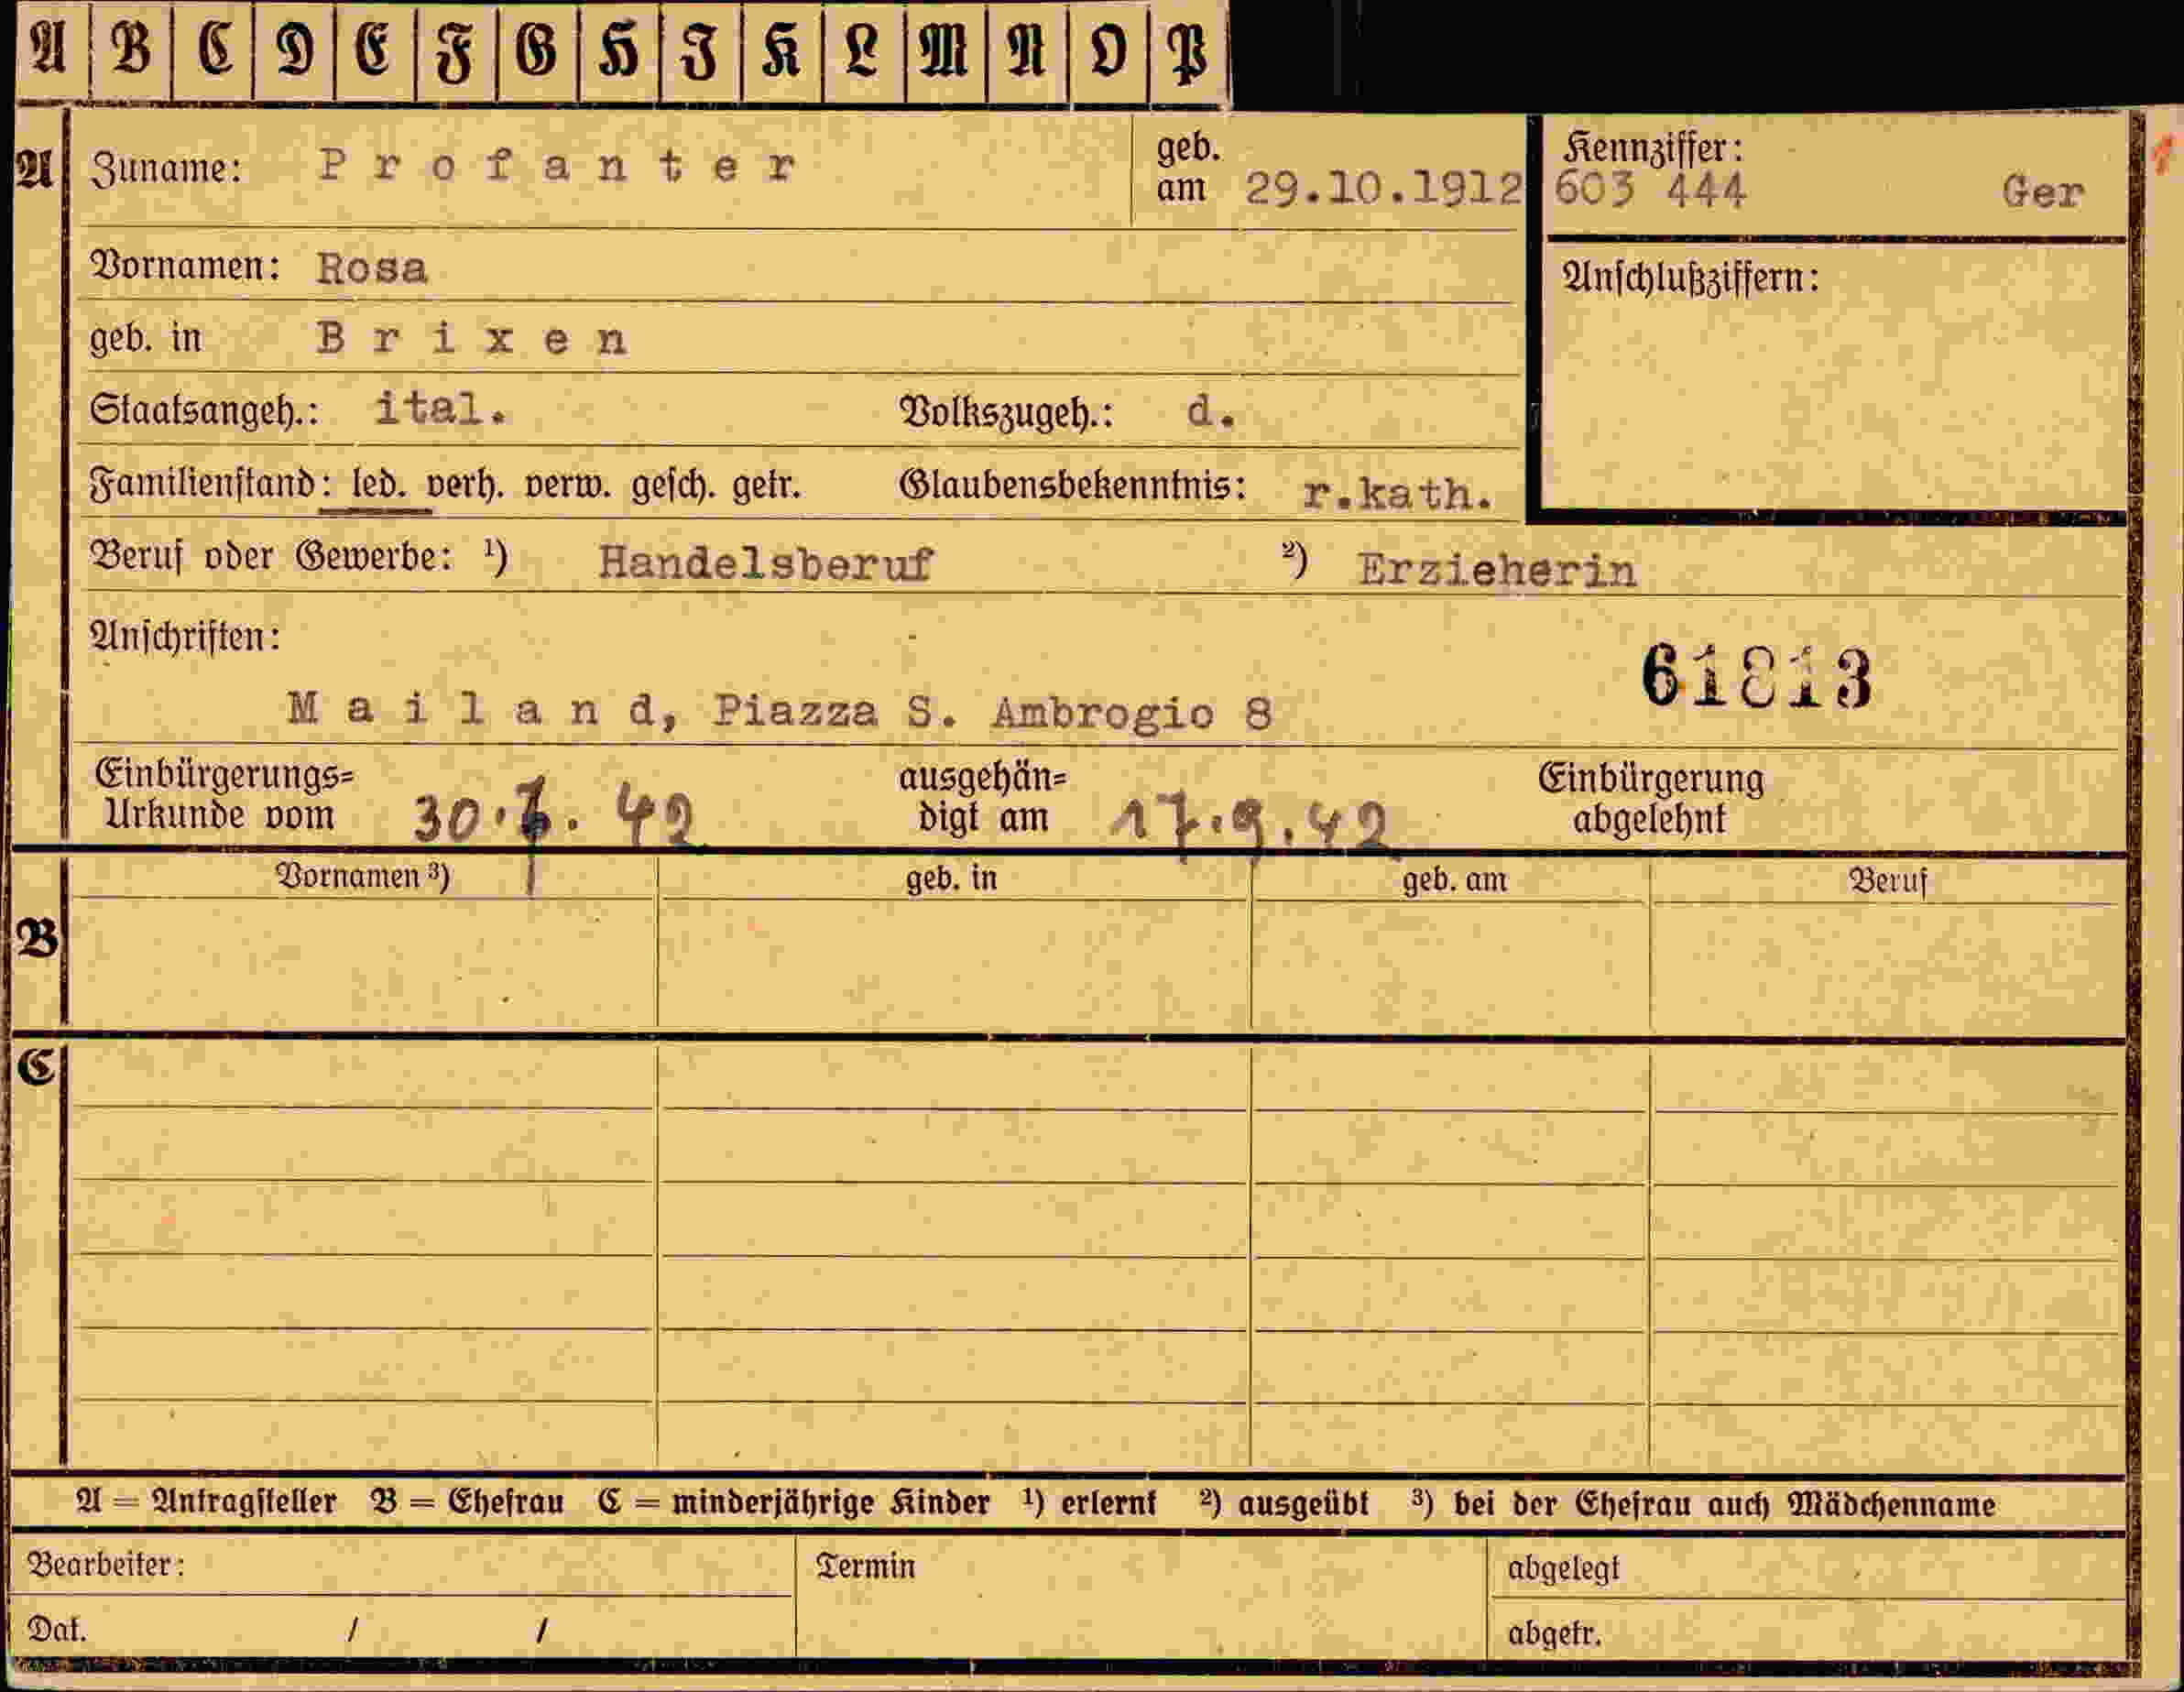 A B C D E F G H I K L M N O P
A Zuname: Profanter geb. am 29.10.1912 Kennziffer: 603 444 Ger
Vornamen: Rosa
Anschlußziffern:
geb. in Brixen
Staatsangeh.: ital. Volkszugeh.: d.
Familienstand: led. verh. verw. gesch. getr. Glaubensbekenntnis: r.kath.
Beruf oder Gewerbe: ¹) Handelsberuf ²) Erzieherin
Anschriften:
61813
Mailand, Piazza S. Ambrogio 8
Einbürgerungs= ausgehän= Einbürgerung
Urkunde vom 30.7.42 digt am 17.9.42 abgelehnt
Vornamen ³) geb. in geb. am Beruf
B
C
A = Antragsteller B = Ehefrau C = minderjährige Kinder ¹) erlernt ²) ausgeübt ³) bei der Ehefrau auch Mädchenname
Bearbeiter: Termin abgelegt
Dat. / / abgetr.